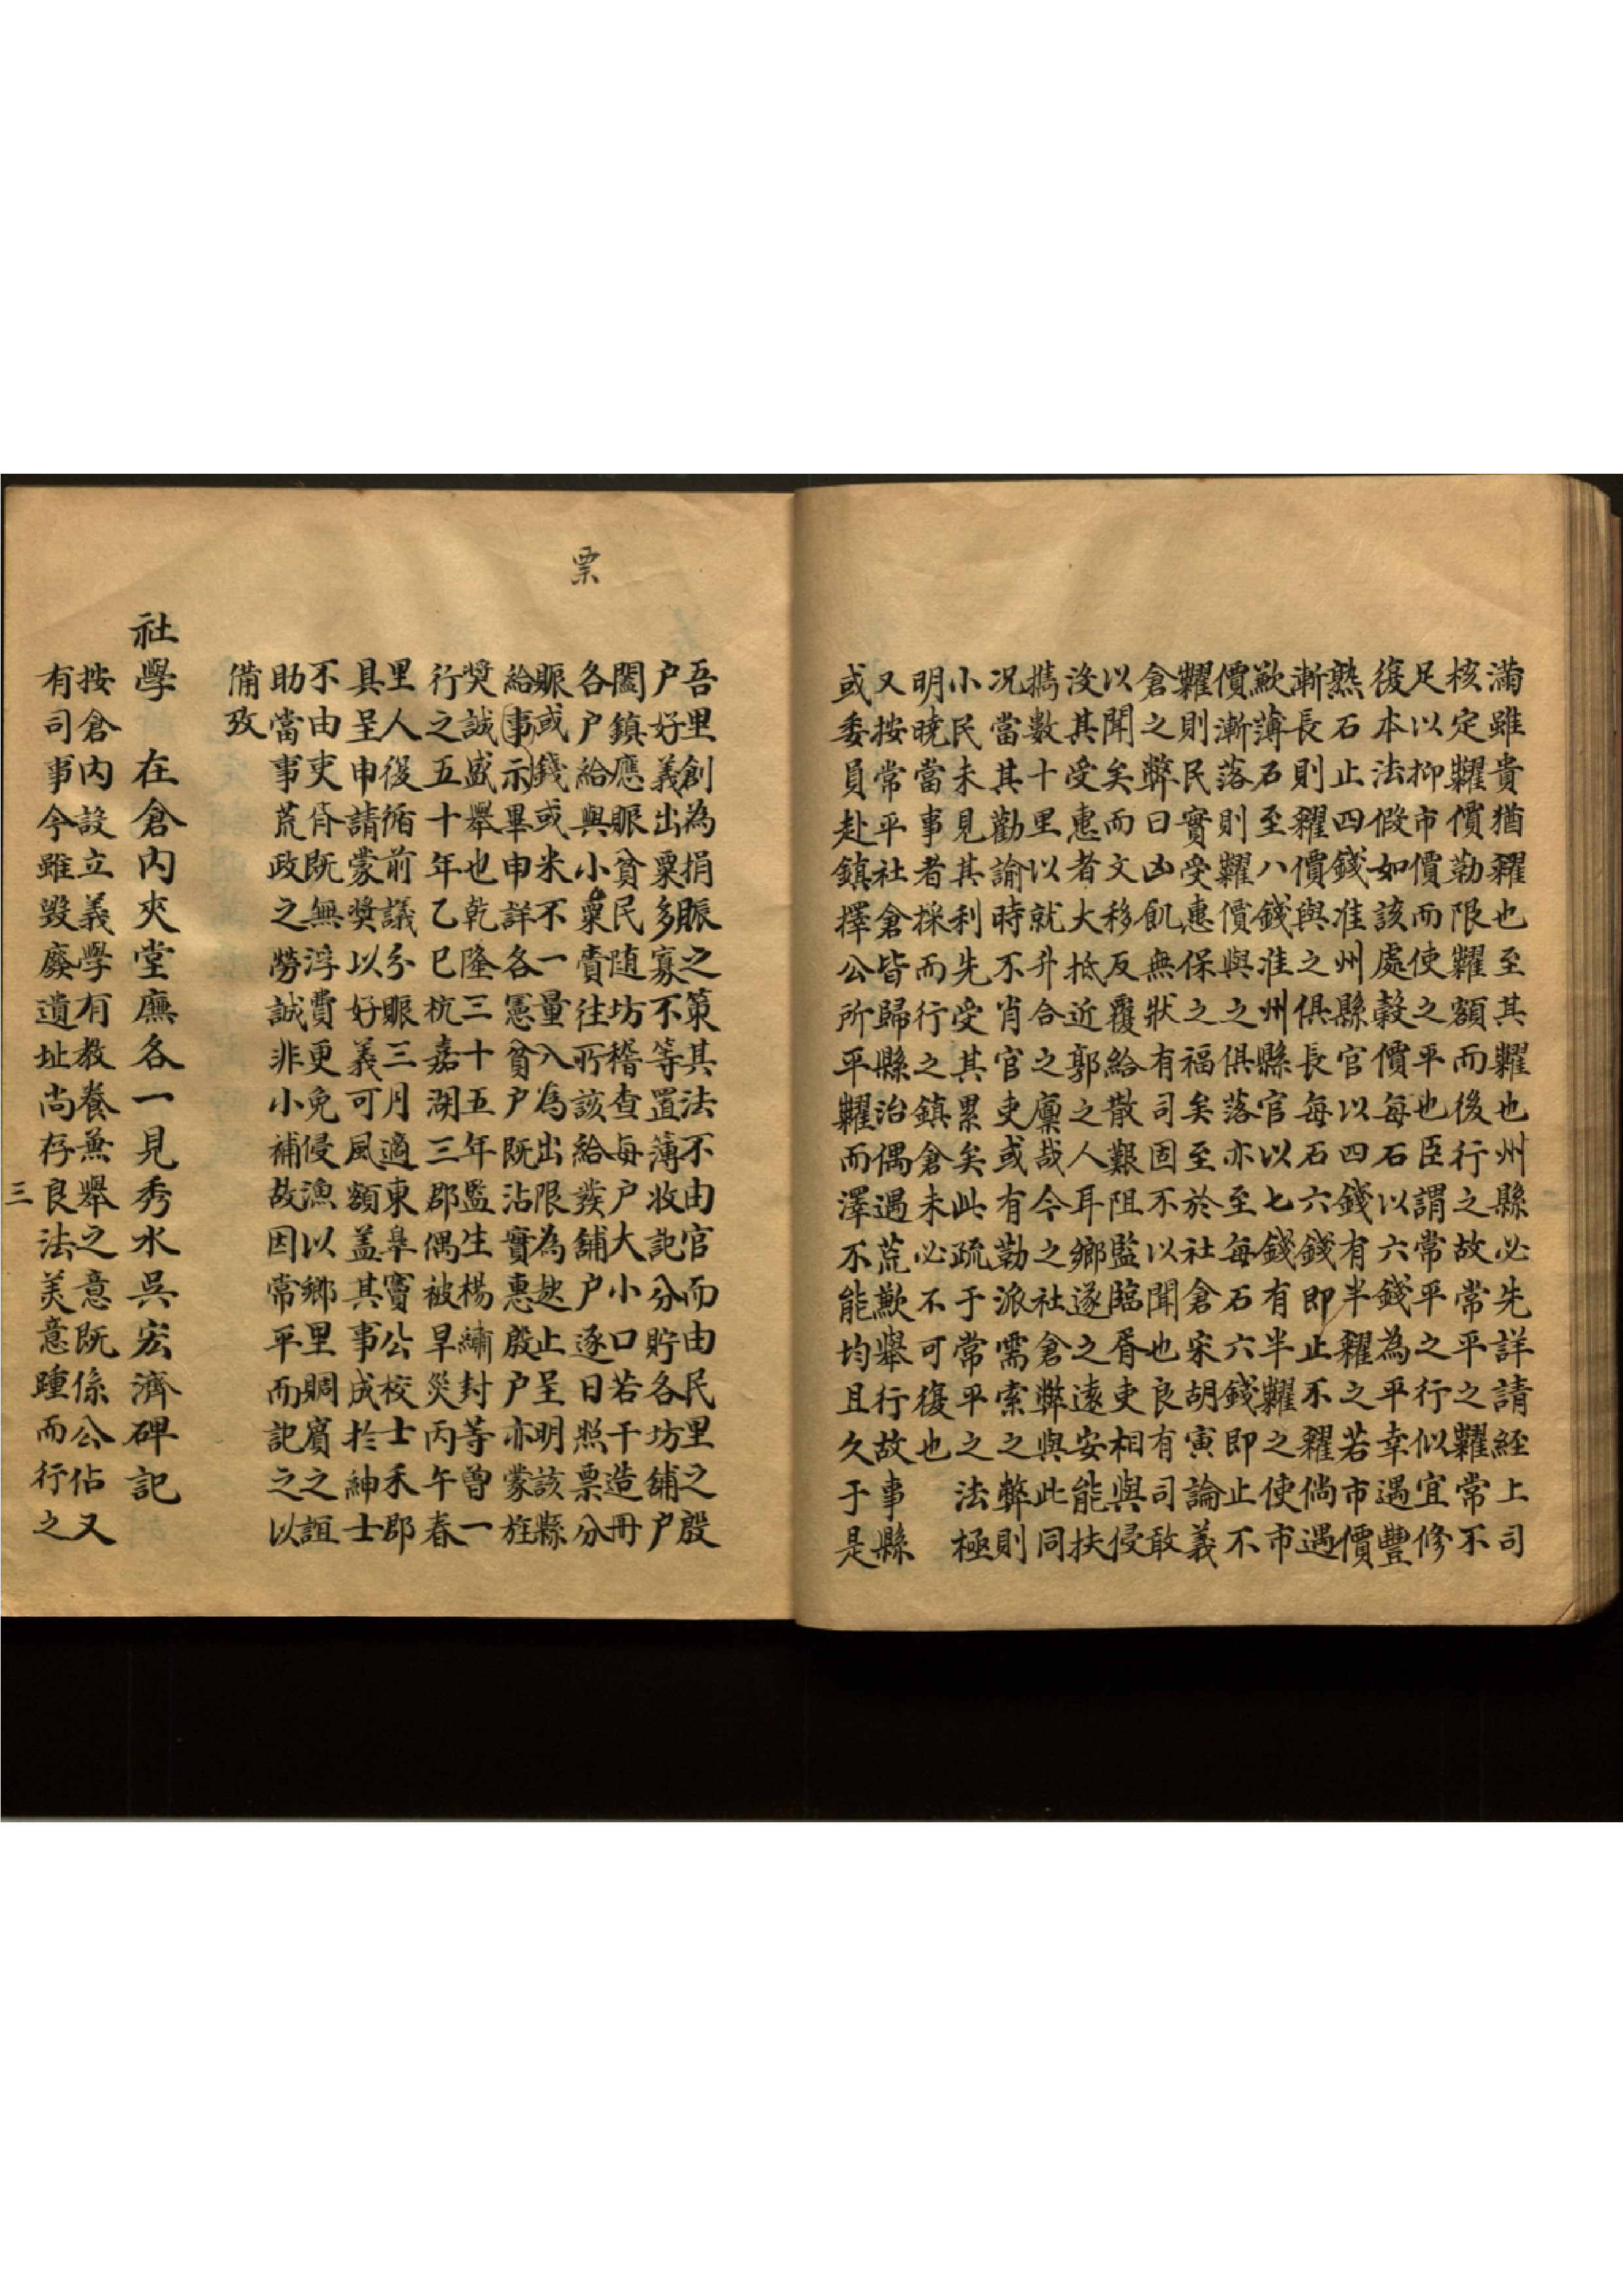 滿雖貴猶糴也至其糶也州縣必先詳請經上司
核定糶價勒限糶額而後行之故常平之糶常不
足以抑市價而使之平也臣謂常平之行似宜修
復本法假如該處穀價每石以六錢為平幸遇豐
熟石止四錢准州縣官以四錢有半糴之若市價
漸長則糴價與之俱長每石六錢即止不糴倘遇
歉薄石至八錢准州縣官以七錢有半糶之使市
價漸落則糶價與之俱落亦至每石六錢即止不
糶則民實受惠保之福矣至於社倉宋胡寅論義
倉之弊曰凶飢無狀有司固不以聞也良有司敢
以聞矣而文移反覆給散艱阻監臨胥吏相與侵
沒其受惠者大抵近郭之人耳鄉遂之遠安能扶
攜數十里以就升合之廩哉今之社倉弊與此同
況當其勸諭時不肖官吏或有勒派需索之弊則
小民未見其利先受其累矣此疏于常平之法極
明曉當事者採而行之鎮倉未必不可復也
又按常平社倉皆歸縣治偶遇荒歉舉行故事縣
或委員赴鎮擇公所平糶而澤不能均且久于是
吾里創為捐賑之策其法不由官而由民里之殷
户好義出粟多寡不等置薄收記分貯各坊舖户
闔鎮應賑貧民随坊稽查每户大小口若干造冊
各户給與小票賫往所該給發舖户逐日照票分
賑或錢或米不一量入為出限為趂止呈明該縣
給示事畢申詳各憲貧户既沾實惠殷户亦蒙旌
獎誠盛舉也乾隆三十五年監生楊繡封等曾一
行之五十年乙巳杭嘉湖三郡偶被旱災丙午春
里人復循前議分賑三月適東皋竇公校士禾郡
具呈申請蒙獎以好義可風額盖其事成於紳士
不由吏胥既無浮費更免侵漁以鄉里賙賓之誼
助當事荒政之勞誠非小補故因常平而記之以
備攷
票
社學 在倉内夾堂廡各一見秀水吳宏濟碑記
按倉内設立義學有教養兼舉之意既係公佔又
有司事今雖毀廢遺址尚存良法美意踵而行之
三